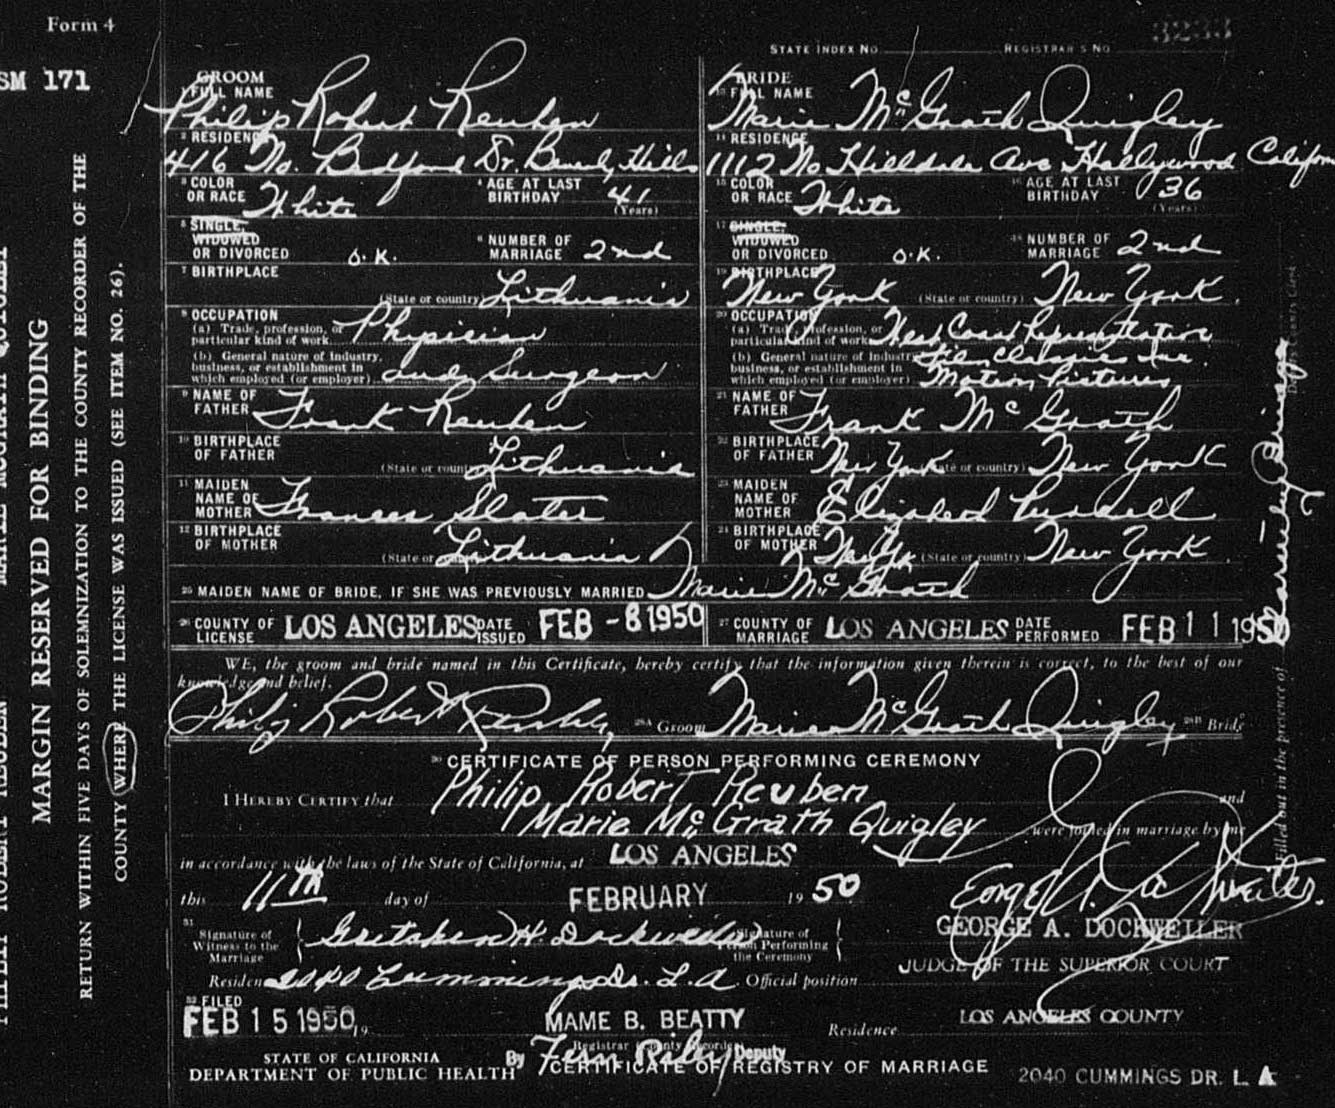 Form 4
SM 171
STATE INDEX No REGISTRAR'S No 3233
MARGIN RESERVED FOR BINDING
RETURN WITHIN FIVE DAYS OF SOLEMNIZATION TO THE COUNTY RECORDER OF THE
COUNTY WHERE THE LICENSE WAS ISSUED (SEE ITEM NO. 26).
GROOM
1 FULL NAME Philip Robert Reuben
2 RESIDENCE
416 No. Bedford Dr. Beverly Hills
3 COLOR OR RACE White 4 AGE AT LAST BIRTHDAY 41 (Years)
5 SINGLE, WIDOWED OR DIVORCED O.K. 6 NUMBER OF MARRIAGE 2nd
7 BIRTHPLACE (State or country) Lithuania
8 OCCUPATION
(a) Trade, profession, or particular kind of work Physician
(b) General nature of Industry, business, or establishment in which employed (or employer) and Surgeon
9 NAME OF FATHER Frank Reuben
10 BIRTHPLACE OF FATHER (State or country) Lithuania
11 MAIDEN NAME OF MOTHER Frances Slater
12 BIRTHPLACE OF MOTHER (State or Lithuania
BRIDE
13 FULL NAME Marie McGrath Quigley
14 RESIDENCE
1112 No Hilldale Ave Hollywood Californ
15 COLOR OR RACE White 16 AGE AT LAST BIRTHDAY 36 (Years)
17 SINGLE, WIDOWED OR DIVORCED O.K. 18 NUMBER OF MARRIAGE 2nd
19 BIRTHPLACE New York (State or country) New York
20 OCCUPATION
(a) Trade, profession, or particular kind of work West Coast Representative
(b) General nature of Industry business, or establishment in which employed (or employer) Classics Inc Motion Pictures
21 NAME OF FATHER Frank McGrath
22 BIRTHPLACE OF FATHER New York (State or country) New York
23 MAIDEN NAME OF MOTHER Elizabeth
24 BIRTHPLACE OF MOTHER New York (State or country) New York
25 MAIDEN NAME OF BRIDE, IF SHE WAS PREVIOUSLY MARRIED Marie McGrath
26 COUNTY OF LICENSE LOS ANGELES DATE ISSUED FEB - 8 1950
27 COUNTY OF MARRIAGE LOS ANGELES DATE PERFORMED FEB 11 1950
WE, the groom and bride named in this Certificate, hereby certify that the information given therein is correct, to the best of our
knowledge and belief.
Philip Robert Reuben 28A Groom Marie McGrath Quigley 28B Bride
30 CERTIFICATE OF PERSON PERFORMING CEREMONY
I HEREBY CERTIFY that Philip Robert Reuben and
Marie McGrath Quigley were joined in marriage by me
in accordance with the laws of the State of California, at LOS ANGELES
this 11th day of FEBRUARY 19 50
31 Signature of Witness to the Marriage Gretchen H. Dockweiler
Signature of Person Performing the Ceremony George A. Dockweiler
GEORGE A. DOCKWEILER
Residence 2040 Cummings Dr. L.A. Official position JUDGE OF THE SUPERIOR COURT
32 FILED
FEB 15 1950, 19 MAME B. BEATTY Residence LOS ANGELES COUNTY
Registrar (County Recorder)
By Fern Raley Deputy
STATE OF CALIFORNIA
DEPARTMENT OF PUBLIC HEALTH CERTIFICATE OF REGISTRY OF MARRIAGE 2040 CUMMINGS DR. L. A
Filled out in the presence of